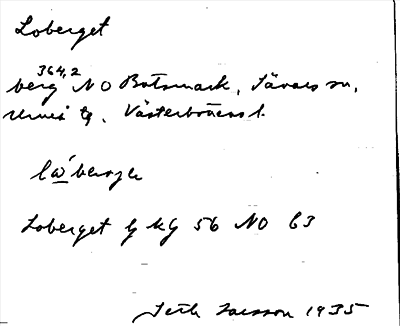 Loberget
364,2
berg NO Botsmark, Sävars sn,
Umeå tg. Västerbottens l.
Loberget g kg 56 NO C3
Seth Larsson 1935